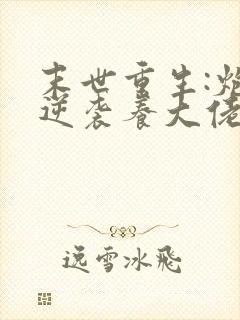 末世重生:炮
逆袭养大佬
远雪冰飛